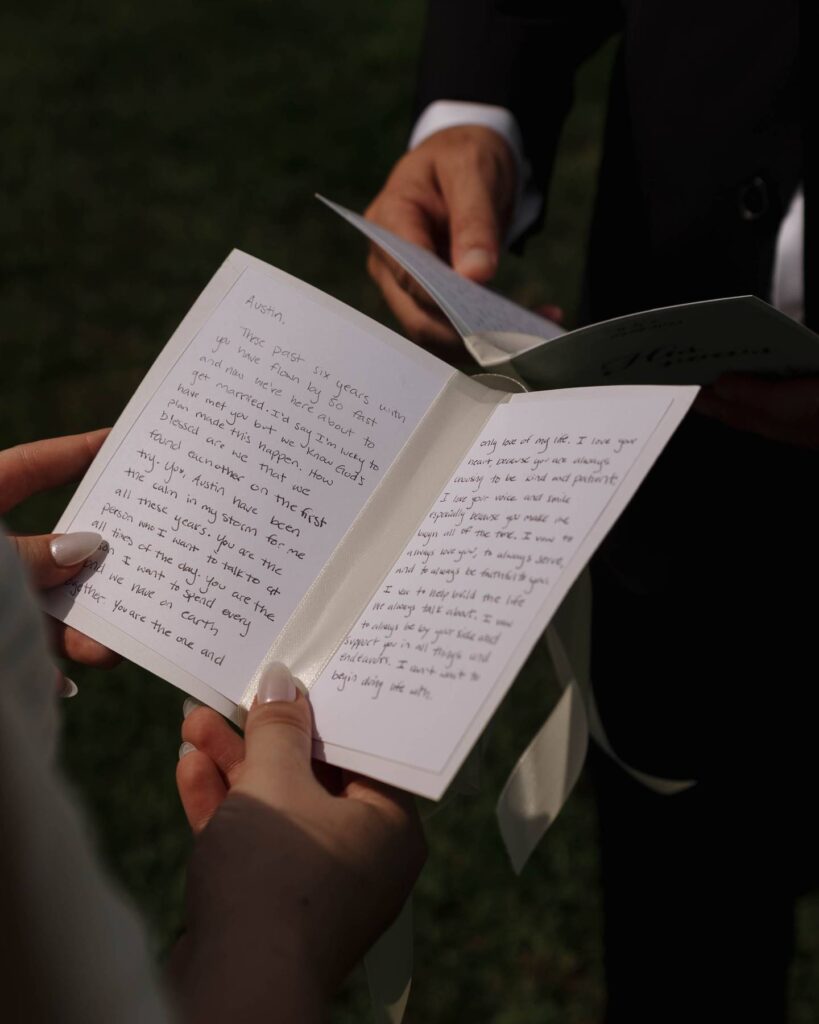 Austin,
These past six years with
you have flown by so fast
and now we're here about to
get married. I'd say I'm lucky to
have met you but we know God's
plan made this happen. How
blessed are we that we
found eachother on the first
try. You, Austin have been
the calm in my storm for me
all these years. You are the
person who I want to talk to at
all times of the day. You are the
I want to spend every
we have on earth
together. You are the one and
only love of my life. I love your
heart, because you are always
choosing to be kind and patient,
I love your voice and smile
especially because you make me
laugh all of the time. I vow to
always love you, to always serve,
and to always be faithful to you.
I vow to help build the life
we always talk about. I vow
to always be by your side and
support you in all things and
endeavors. I can't wait to
begin doing life with.
His